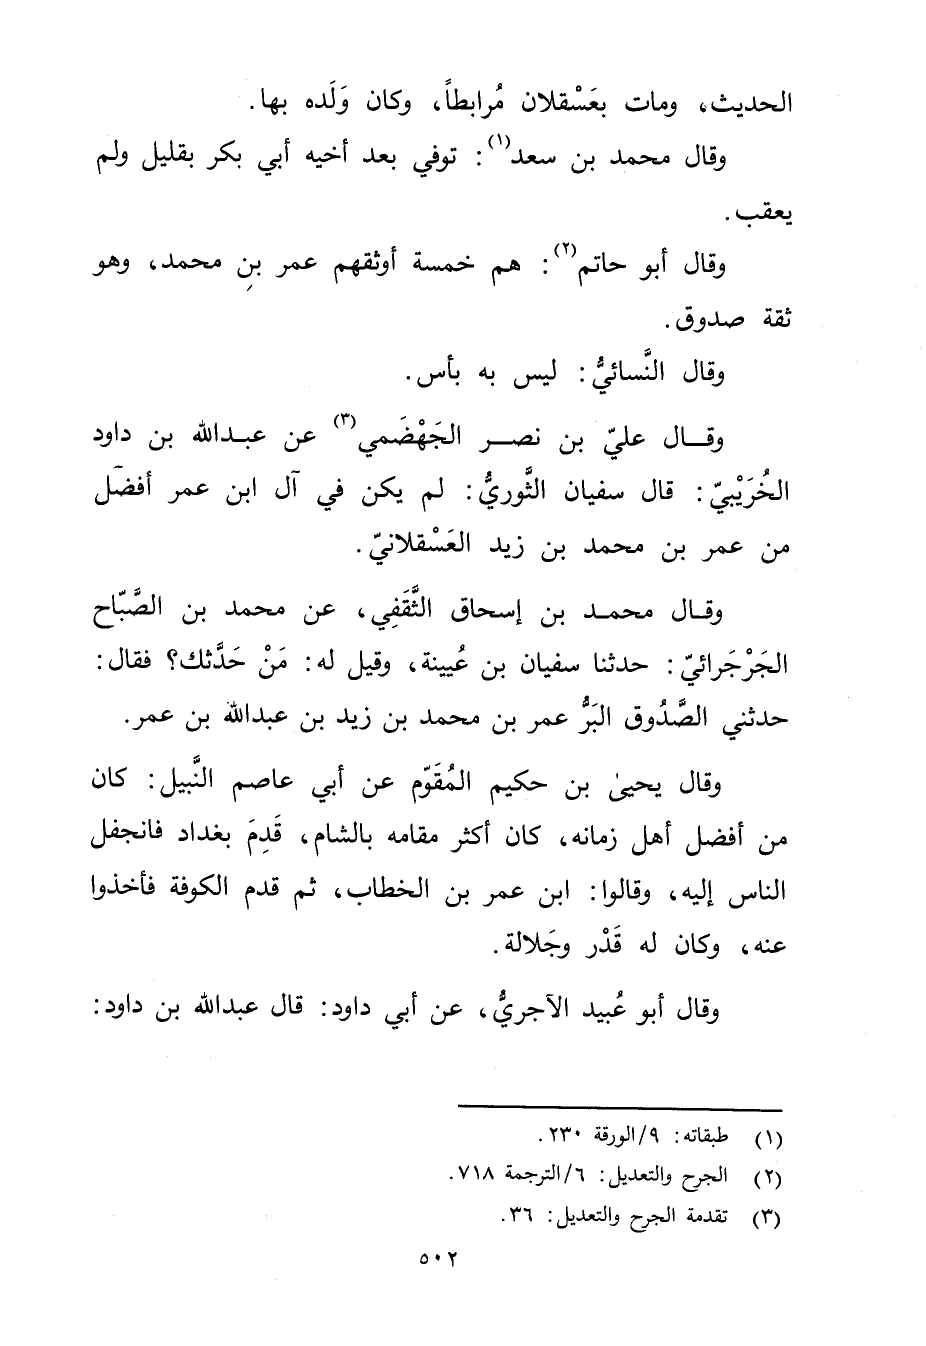 الحديث، ومات بعَسْقلان مُرابطاً، وكان وَلَده بها.
وقال محمد بن سعد(١): توفي بعد أخيه أبي بكر بقليل ولم
يعقب.
وقال أبو حاتم(٢): هم خمسة أوثقهم عمر بن محمد، وهو
ثقة صدوق.
وقال النَّسائيُّ: ليس به بأس.
وقال عليّ بن نصر الجَهْضَمي(٣) عن عبدالله بن داود
الخُرَيْبيّ: قال سفيان الثَّوريُّ: لم يكن في آل ابن عمر أفضل
من عمر بن محمد بن زيد العَسْقلانيّ.
وقال محمد بن إسحاق الثَّقَفِي، عن محمد بن الصَّبّاح
الجَرْجَرائيّ: حدثنا سفيان بن عُيينة، وقيل له: مَنْ حَدَّثك؟ فقال:
حدثني الصَّدُوق البَرُّ عمر بن محمد بن زيد بن عبدالله بن عمر.
وقال يحيىٰ بن حكيم المُقَوّم عن أبي عاصم النَّبيل: كان
من أفضل أهل زمانه، كان أكثر مقامه بالشام، قَدِمَ بغداد فانجفل
الناس إليه، وقالوا: ابن عمر بن الخطاب، ثم قدم الكوفة فأخذوا
عنه، وكان له قَدْر وجَلالة.
وقال أبو عُبيد الآجريُّ، عن أبي داود: قال عبدالله بن داود:
(١) طبقاته: ٩/الورقة ٢٣٠.
(٢) الجرح والتعديل: ٦/الترجمة ٧١٨.
(٣) تقدمة الجرح والتعديل: ٣٦.
٥٠٢